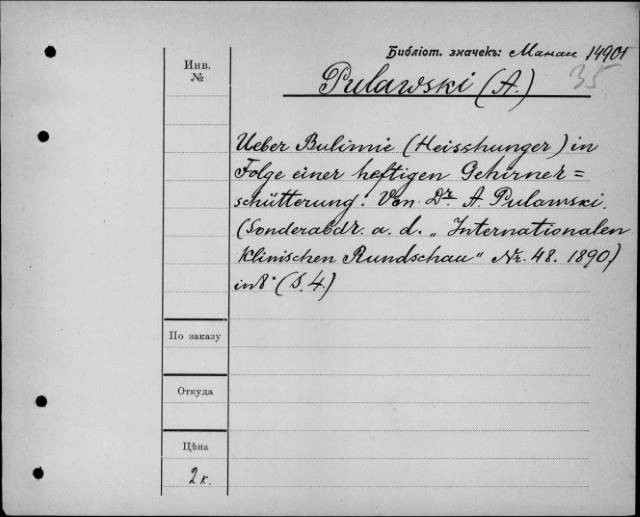 Библіот. значекъ: Манаи 14901
35
Инв.
№
Pulawski (A.)
Ueber Bulimie (Heisshunger) in
Folge einer heftigen Gehirner=
schütterung. Von Dr A. Pulawski.
(Sonderabdr. a. d. „Internationalen
klinischen Rundschau" Nr. 48. 1890)
in8° (S. 4.)
По заказу
Откуда
Цѣна
2 к.